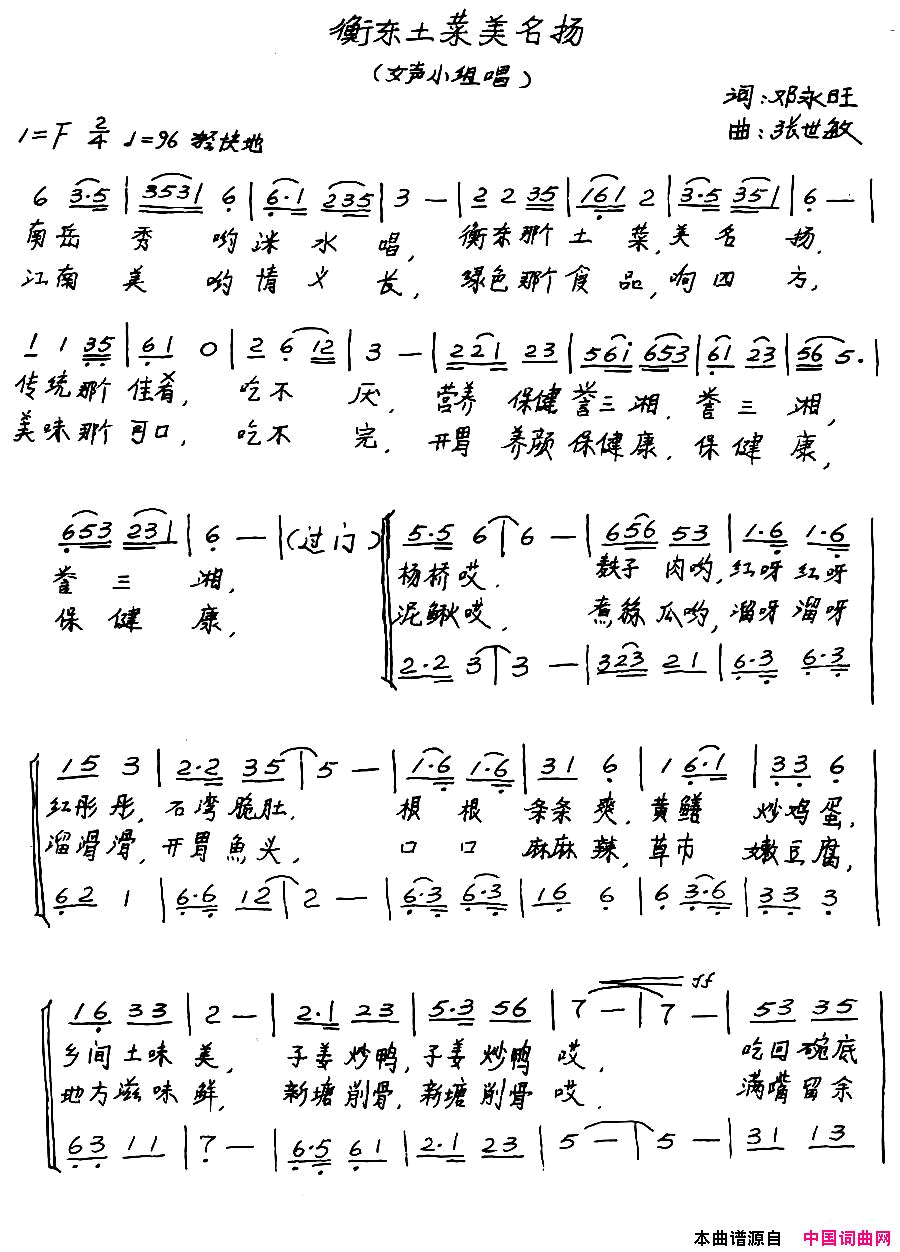 衡东土菜美名扬
（女声小组唱）
词：邓永旺
曲：张世敏
1=F 2/4 ♩=96 轻快地
6 3·5 | 3531 6 | 6·1 235 | 3 — | 2 2 35 | 161 2 | 3·5 351 | 6 — |
南岳 秀 哟 洣 水 唱， 衡东那个 土 菜，美 名 扬，
江南 美 哟 情 义 长， 绿色那个食 品，响 四 方，
1 1 35 | 61 0 | 2 6 12 | 3 — | 221 23 | 561 653 | 61 23 | 56 5· |
传统 那个 佳肴， 吃 不 厌， 营养 保健 誉三 湘，誉 三 湘，
美味 那个 可口， 吃 不 完， 开胃 养颜 保健 康，保 健 康，
653 231 | 6 — | (过门)
誉 三 湘，
保 健 康，
5·5 6 | 6 — | 656 53 | 1·6 1·6
杨桥哎， 麸子 肉哟，红呀 红呀
泥鳅哎， 煮丝 瓜哟，溜呀 溜呀
2·2 3 | 3 — | 323 21 | 6·3 6·3
15 3 | 2·2 35 | 5 — | 1·6 1·6 | 31 6 | 1 6·1 | 33 6
红彤 彤，石湾 脆肚， 根 根 条条 爽，黄鳝 炒鸡 蛋，
溜滑 滑，开胃 魚头， 口 口 麻麻 辣，草市 嫩豆 腐，
62 1 | 6·6 12 | 2 — | 6·3 6·3 | 16 6 | 6 3·6 | 33 3
16 33 | 2 — | 2·1 23 | 5·3 56 | 7 — | 7 — | 53 35
ff
乡间 土味 美， 子姜 炒鸭，子姜 炒鸭 哎， 吃回 碗底
地方 滋味 鲜， 新塘 削骨，新塘 削骨 哎， 满嘴 留余
63 11 | 7 — | 6·5 61 | 2·1 23 | 5 — | 5 — | 31 13
本曲谱源自 中国词曲网